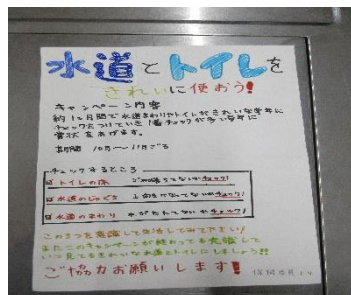 水道とトイレを
きれいに使おう!
キャンペーン内容
約1ヶ月間で水道まわりやトイレがきれいな学年に
チェックをつけていき1番チェックが多い学年に
賞状をあげます。
期間 10月〜11月ごろ
チェックするところ
トイレの床 ゴミが落ちてないかチェック!
水道のじゃぐち 上向きになってないかチェック!
水道のまわり 水がたれてないかチェック!
この3つを意識して生活してみてください!
またこのキャンペーンが終わっても意識して
いつ見てもきれいな水道とトイレにしましょう!!
ご協力お願いします!
保健委員より